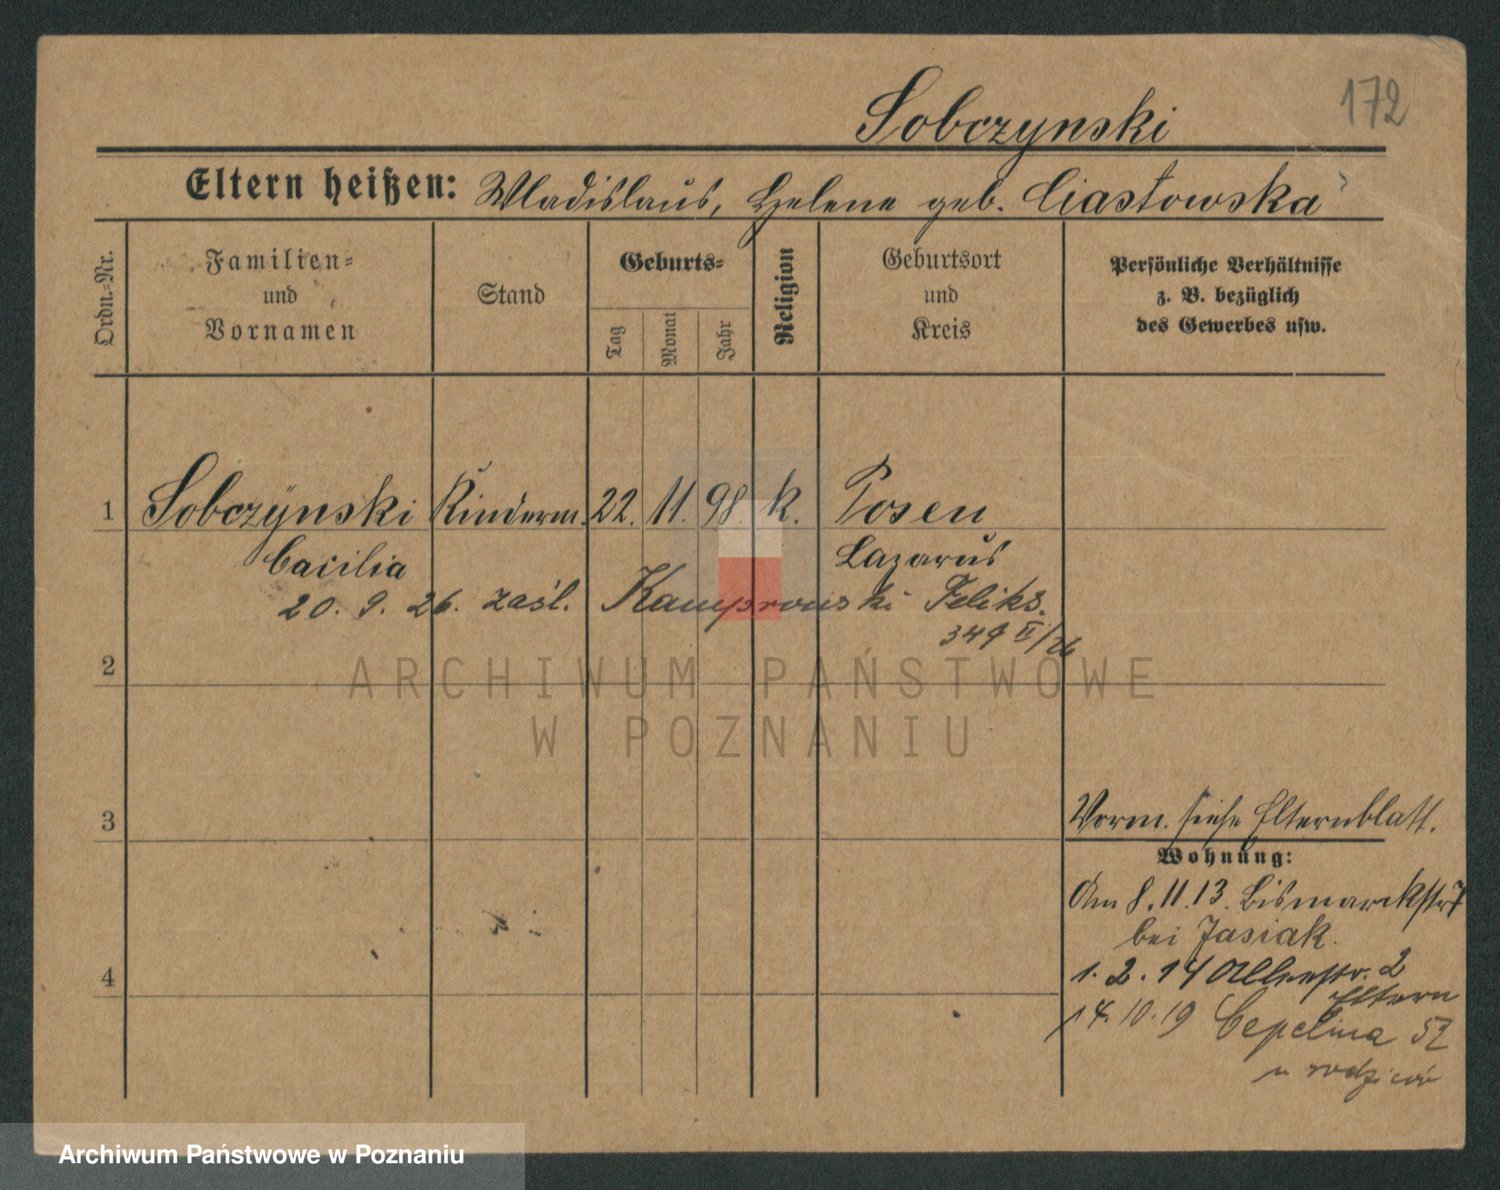 172
Sobczynski
Eltern heißen: Wladislaus, Helene geb. Ciastowska
Ordn.-Nr.
Familien-
und
Vornamen
Stand
Geburts-
Tag
Monat
Jahr
Religion
Geburtsort
und
Kreis
Persönliche Verhältnisse
z. B. bezüglich
des Gewerbes usw.
1 Sobczynski Kinderm. 22. 11. 98. k. Posen
Cacilia Lazarus
20. 9. 26. zaśl. Kamprowski Feliks.
349 II/26
2
ARCHIWUM PAŃSTWOWE
W POZNANIU
3
Vorm. siehe Elternblatt.
Wohnung:
Am 8. 11. 13. Bismarckstr 7
bei Jasiak.
4
1. 2. 14 2
Eltern
14. 10. 19 Cepelina 52
u rodziców
Archiwum Państwowe w Poznaniu